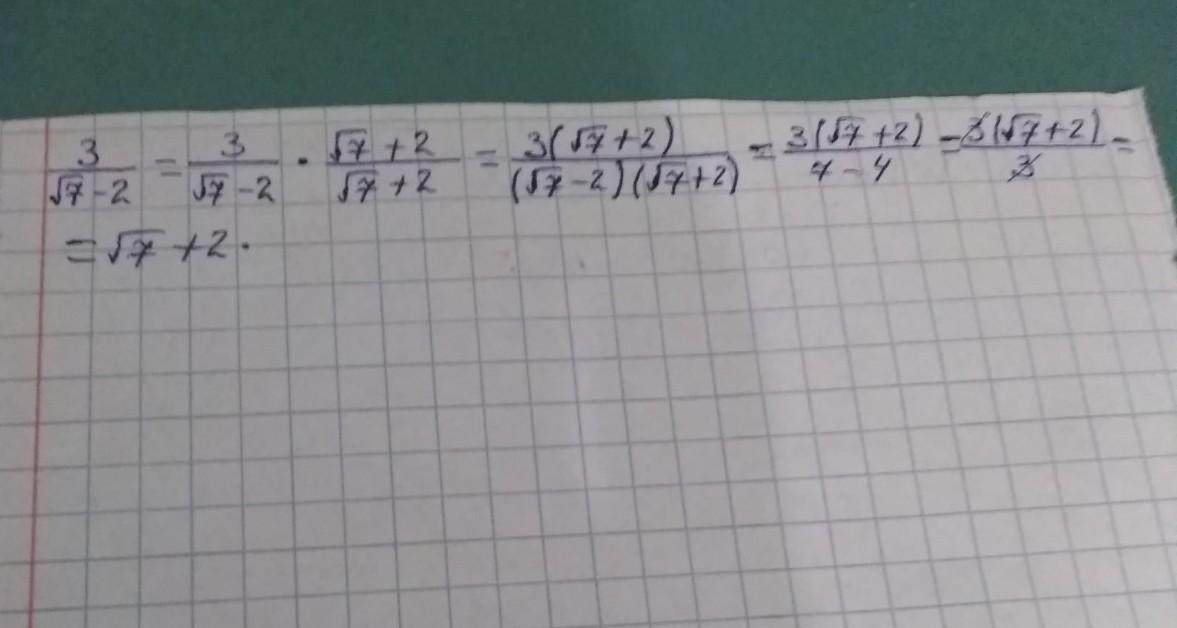 3/(√7-2) = 3/(√7-2) · (√7+2)/(√7+2) = 3(√7+2)/((√7-2)(√7+2)) = 3(√7+2)/(7-4) = 3(√7+2)/3 =
= √7+2.